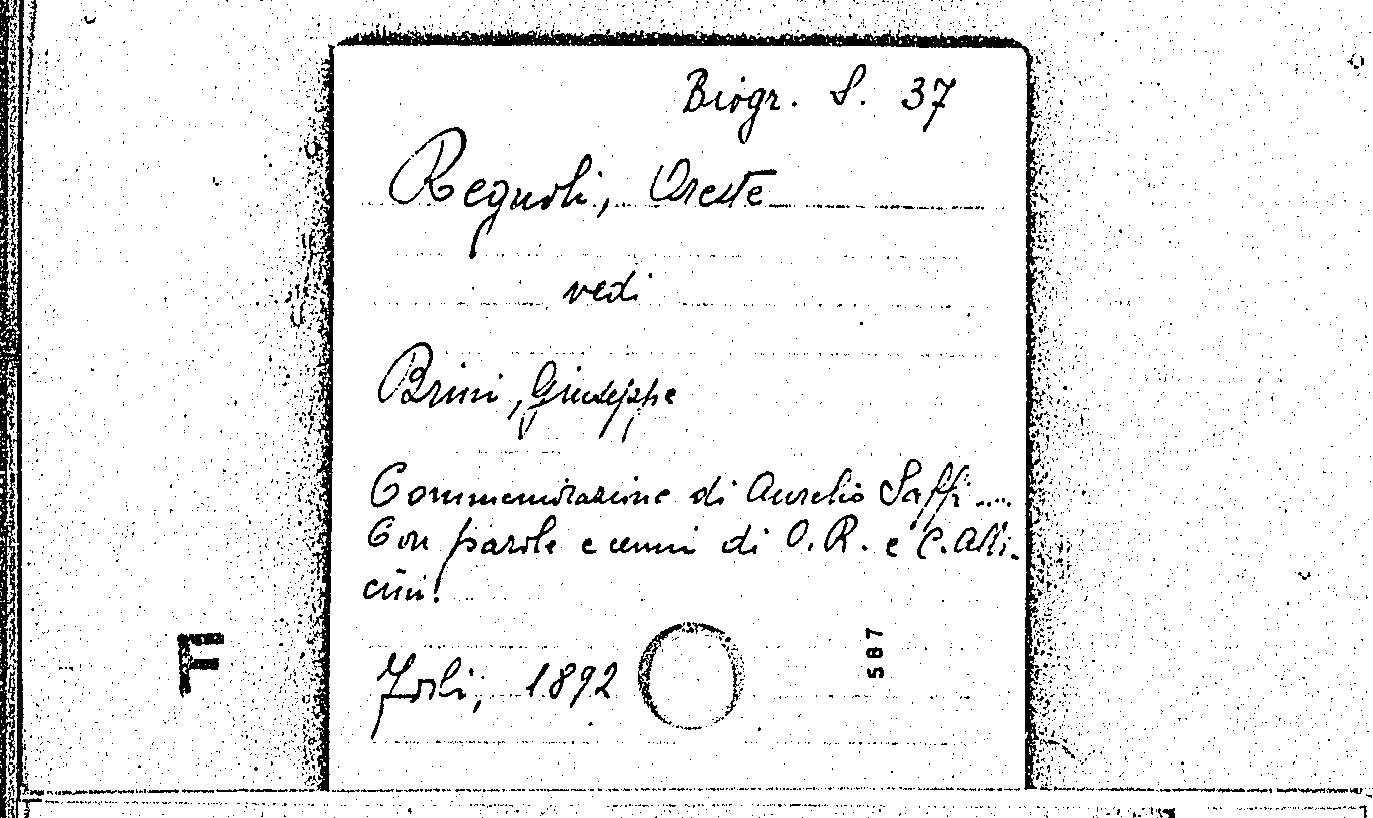 Biogr. S. 37
Regnoli, Oreste
vedi
Brini, Giuseppe
Commemorazione di Aurelio Saffi ....
Con parole e cenni di O. R. e C. Alli-
cini.
F
587
Forlì, 1892